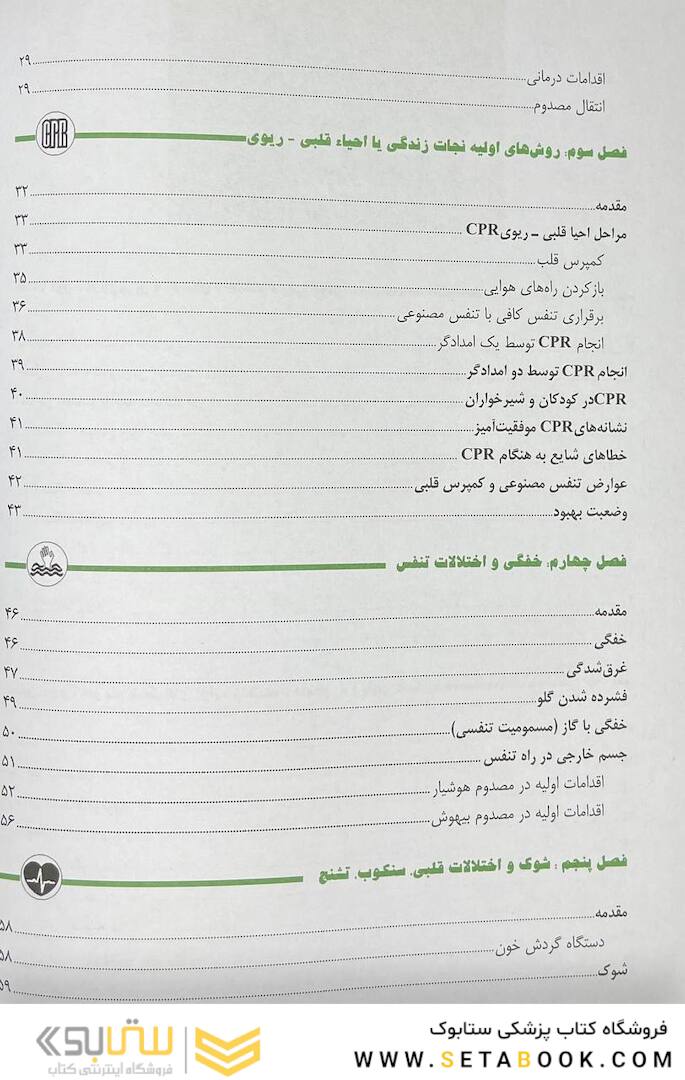 اقدامات درمانی ۲۹
انتقال مصدوم ۲۹
فصل سوم: روش‌های اولیه نجات زندگی یا احیاء قلبی - ریوی
CPR
مقدمه ۳۲
مراحل احیا قلبی ـ ریوی CPR ۳۳
کمپرس قلب ۳۳
بازکردن راه‌های هوایی ۳۵
برقراری تنفس کافی با تنفس مصنوعی ۳۶
انجام CPR توسط یک امدادگر ۳۸
انجام CPR توسط دو امدادگر ۳۹
CPR در کودکان و شیرخواران ۴۰
نشانه‌های CPR موفقیت‌آمیز ۴۱
خطاهای شایع به هنگام CPR ۴۱
عوارض تنفس مصنوعی و کمپرس قلبی ۴۲
وضعیت بهبود ۴۳
فصل چهارم: خفگی و اختلالات تنفس
مقدمه ۴۶
خفگی ۴۶
غرق‌شدگی ۴۷
فشرده شدن گلو ۴۹
خفگی با گاز (مسمومیت تنفسی) ۵۰
جسم خارجی در راه تنفس ۵۱
اقدامات اولیه در مصدوم هوشیار ۵۲
اقدامات اولیه در مصدوم بیهوش ۵۶
فصل پنجم: شوک و اختلالات قلبی، سنکوپ، تشنج
مقدمه ۵۸
دستگاه گردش خون ۵۸
شوک ۵۹
فروشگاه کتاب پزشکی ستابوک
WWW.SETABOOK.COM
ستابوک
فروشگاه اینترنتی کتاب